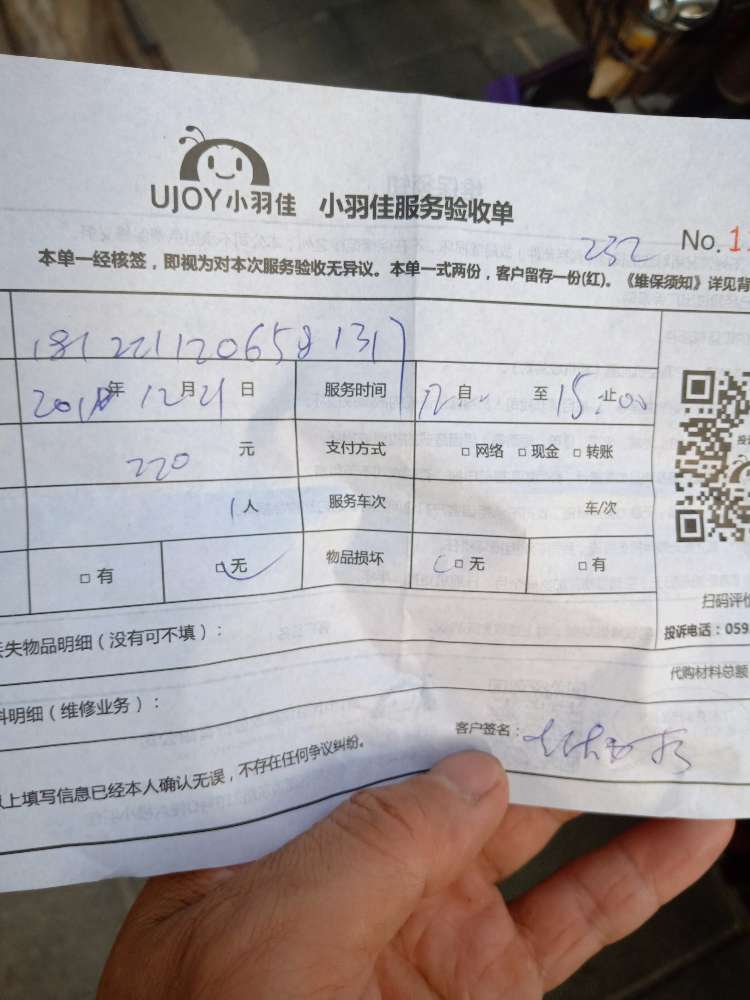 UJOY小羽佳 小羽佳服务验收单
232
No. 11
本单一经核签，即视为对本次服务验收无异议。本单一式两份，客户留存一份(红)。《维保须知》详见背
2018年12月21日 服务时间 12自 至15:00止
220 元 支付方式 □ 网络 □ 现金 □ 转账
1人 服务车次 车/次
□ 有 □ 无 物品损坏 □ 无 □ 有
扫码评价
投诉电话：059
失物品明细（没有可不填）：
代购材料总额
料明细（维修业务）：
客户签名：
以上填写信息已经本人确认无误，不存在任何争议纠纷。